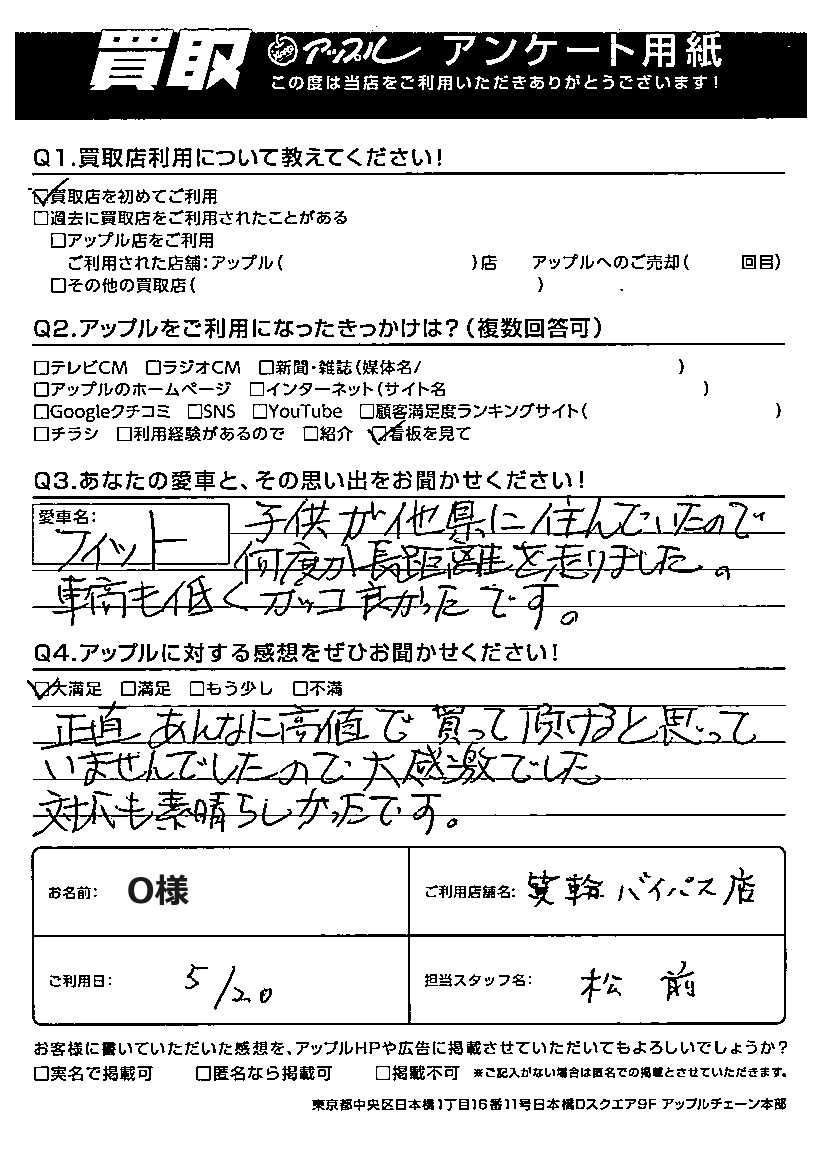 買取 アップル アンケート用紙
この度は当店をご利用いただきありがとうございます!
Q1.買取店利用について教えてください!
☑買取店を初めてご利用
□過去に買取店をご利用されたことがある
□アップル店をご利用
ご利用された店舗:アップル( )店 アップルへのご売却( 回目)
□その他の買取店( )
Q2.アップルをご利用になったきっかけは?(複数回答可)
□テレビCM □ラジオCM □新聞・雑誌(媒体名/ )
□アップルのホームページ □インターネット(サイト名 )
□Googleクチコミ □SNS □YouTube □顧客満足度ランキングサイト( )
□チラシ □利用経験があるので □紹介 ☑看板を見て
Q3.あなたの愛車と、その思い出をお聞かせください!
愛車名:
フィット
子供が他県に住んでいたので
何度か長距離を走りました。
車高も低くカッコ良かったです。
Q4.アップルに対する感想をぜひお聞かせください!
☑大満足 □満足 □もう少し □不満
正直あんなに高値で買って頂けると思って
いませんでしたので大感激でした
対応も素晴らしかったです。
お名前: O様 ご利用店舗名: 箕輪バイパス店
ご利用日: 5/20 担当スタッフ名: 松前
お客様に書いていただいた感想を、アップルHPや広告に掲載させていただいてもよろしいでしょうか?
□実名で掲載可 □匿名なら掲載可 □掲載不可 ※ご記入がない場合は匿名での掲載とさせていただきます。
東京都中央区日本橋1丁目16番11号日本橋Dスクエア9F アップルチェーン本部